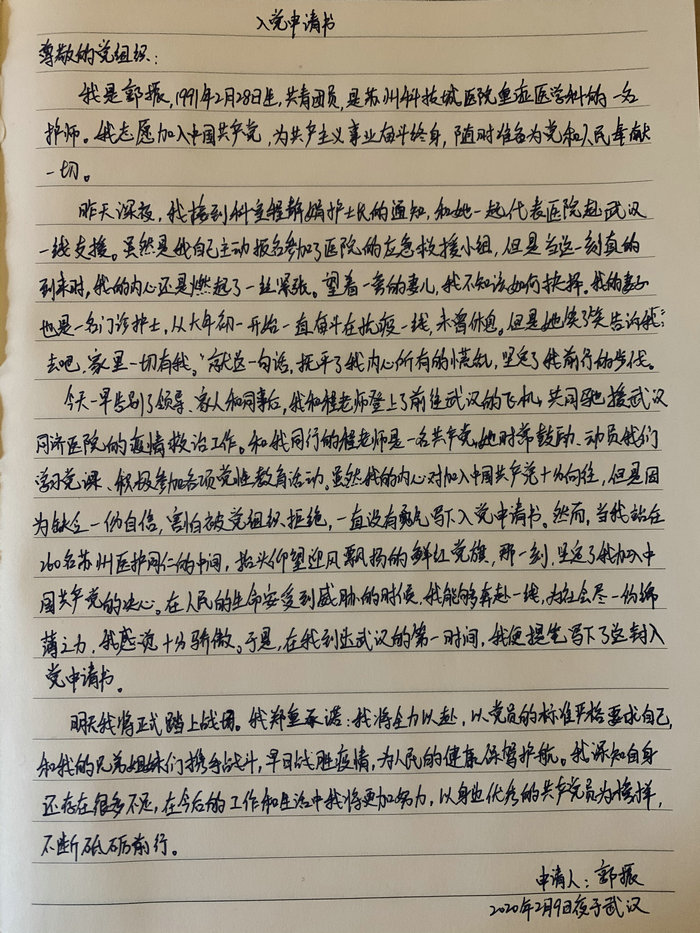 入党申请书
尊敬的党组织：
我是郭振，1991年2月28日生，共青团员，是苏州科技城医院重症医学科的一名
护师。我志愿加入中国共产党，为共产主义事业奋斗终身，随时准备为党和人民奉献
一切。
昨天深夜，我接到科室程静娟护士长的通知，和她一起代表医院赴武汉
一线支援。虽然是我自己主动报名参加了医院的应急救援小组，但是当这一刻真的
到来时，我的内心还是燃起了一丝紧张。望着一旁的妻儿，我不知该如何抉择。我的妻子
也是一名门诊护士，从大年初一开始一直奋斗在抗疫一线，未曾休息。但是她笑了笑告诉我：“
去吧，家里一切有我。”就这一句话，抚平了我内心所有的慌乱，坚定了我前行的步伐。
今天一早告别了领导、家人和同事后，我和程老师登上了前往武汉的飞机，共同驰援武汉
同济医院的疫情救治工作。和我同行的程老师是一名共产党，她时常鼓励、动员我们
学习党课、积极参加各项党性教育活动。虽然我的内心对加入中国共产党十分向往，但是因
为缺乏一份自信，害怕被党组织拒绝，一直没有勇气写下入党申请书。然而，当我站在
260名苏州医护同仁的中间，抬头仰望迎风飘扬的鲜红党旗，那一刻，坚定了我加入中
国共产党的决心。在人民的生命安受到威胁的时候，我能够奔赴一线，为社会尽一份绵
薄之力，我感觉十分骄傲。于是，在我到达武汉的第一时间，我便提笔写下了这封入
党申请书。
明天我将正式踏上战场。我郑重承诺：我将全力以赴，以党员的标准严格要求自己，
和我的兄弟姐妹们携手战斗，早日战胜疫情，为人民的健康保驾护航。我深知自身
还存在很多不足，在今后的工作和生活中我将更加努力，以身边优秀的共产党员为榜样，
不断砥砺前行。
申请人：郭振
2020年2月9日夜于武汉